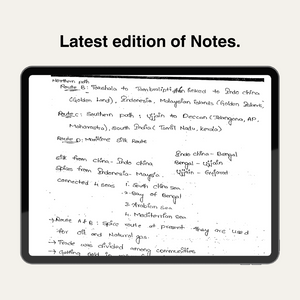 Latest edition of Notes.
Northern path
Route B: Takshila to Tambralipti linked to Indo china
(Golden Land), Indonesia, Malaysian Islands (Golden Islands)
Route C: Southern path; Ujjain to Deccan (Telangana, AP,
Maharastra), South India (Tamil Nadu, Kerala)
Route D: Maritime silk Route
Silk from china - Indo china
Indo china - Bengal
Bengal - Ujjain
Spices from Indonesia - Malaysia.
Ujjain - Gujarat
connected 4 seas
1. South china sea
2. Bay of Bengal
3. Arabian sea
4. Mediterrian sea
→ Route A & B: Spice route at present they are used
for oil and Natural gas.
→ Trade was divided among communities